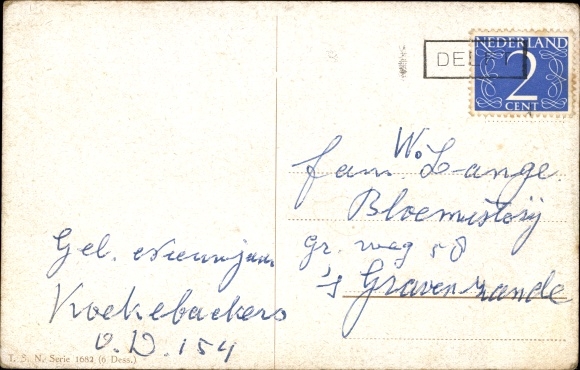 DELFT
NEDERLAND
2
CENT
fam. W. Lange.
Bloemisterij
Gr. weg 58
's Gravenzande
Gel. Nieuwjaar
Koekebackers
v. D. 154
T. S. N. Serie 1682 (6 Dess.)